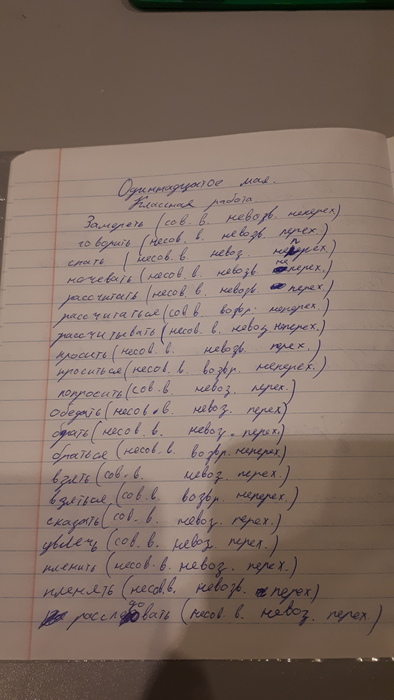 Одиннадцатое мая.
Классная работа.
Замереть (сов. в. невозв. неперех)
говорить (несов. в. невозв. перех.)
спать (несов. в. невоз. неперех)
ночевать (несов. в. невозв неперех.)
рассчитать (несов. в. невозв перех.)
рассчитаться (сов в. возвр. неперех.)
рассчитывать (несов. в. невоз неперех.)
просить (несов. в. невозв. перех.)
проситься (несов. в. возвр. неперех.)
попросить (сов. в. невоз. перех.)
обедать (несов. в. невоз. перех)
брать (несов. в. невоз. перех.)
браться (несов. в. возвр. неперех)
взять (сов. в. невоз. перех.)
взяться (сов. в. возвр. неперех.)
сказать (сов. в. невоз. перех.)
увлечь (сов. в. невоз. перех.)
пленить (несов. в. невоз. перех.)
пленять (несов. в. невозв. перех)
расследовать (несов. в. невоз. перех.)